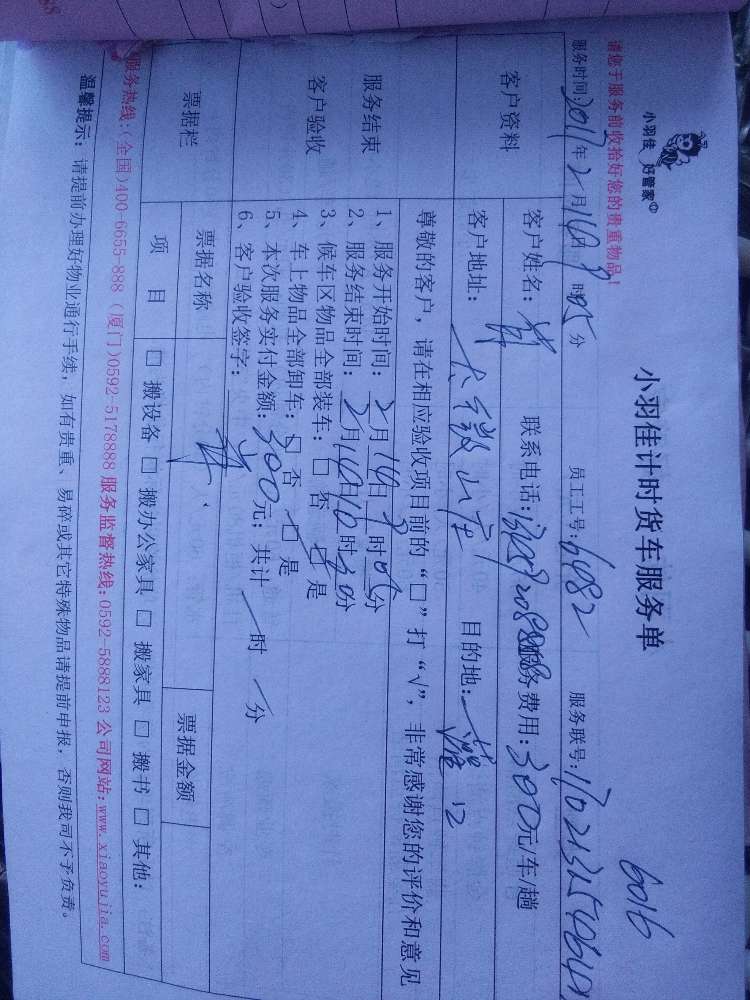 小羽佳 好管家
小羽佳计时货车服务单
6016
请您于服务前收拾好您的贵重物品！
服务时间:2017年2月14日9时05分 员工工号:6482 服务联号:
客户资料
客户姓名: 联系电话: 服务费用:300元/车/趟
客户地址: 山庄 目的地:灌口
尊敬的客户，请在相应验收项目前的“□”打“√”，非常感谢您的评价和意见
服务结束
客户验收
1、服务开始时间:2月14日9时05分
2、服务结束时间:2月14日10时30分
3、候车区物品全部装车:□ 否 □ 是
4、车上物品全部卸车:□ 否 □ 是
5、本次服务实付金额:300元；共计 时 分
6、客户验收签字:
票据栏
票据名称 票据金额
项 目 □ 搬设备 □ 搬办公家具 □ 搬家具 □ 搬书 □ 其他:
服务热线:(全国)400-6655-888 (厦门)0592-5178888 服务监督热线:0592-5888123 公司网站:www.xiaoyujia.com
温馨提示: 请提前办理好物业通行手续，如有贵重、易碎或其它特殊物品请提前申报，否则我司不予负责。